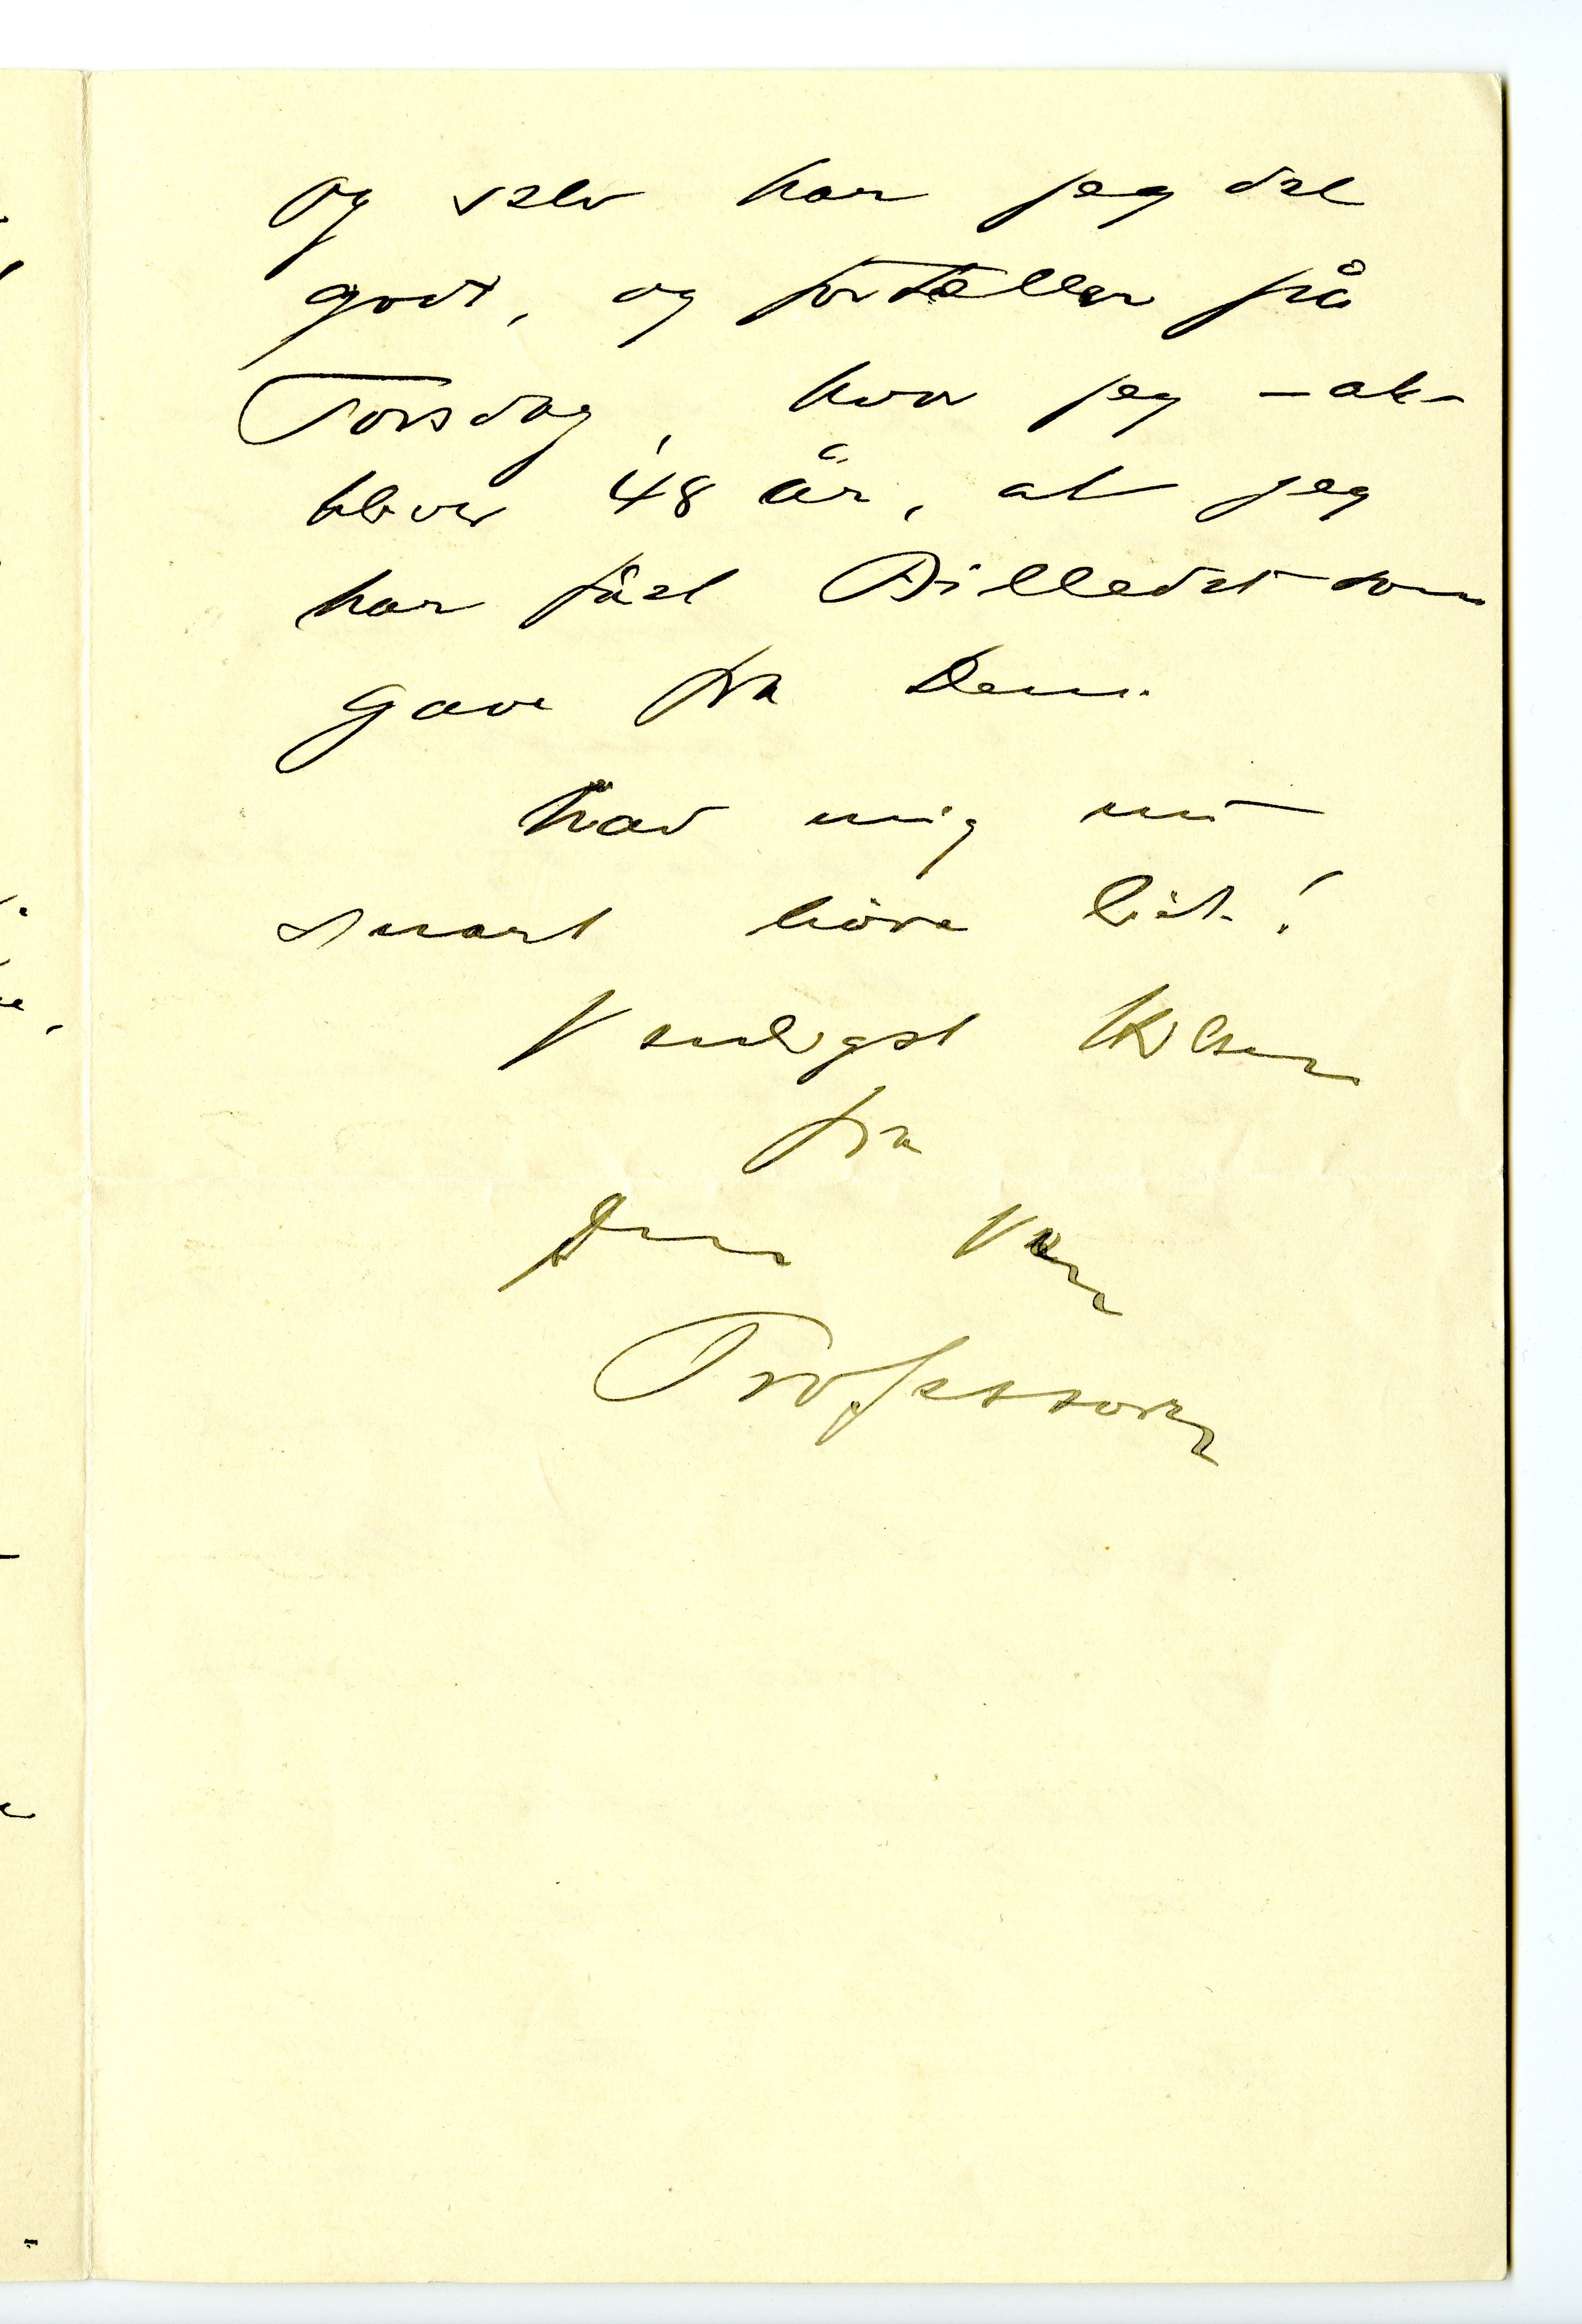 og selv har jeg det
godt, og fortæller på
Torsdag, hvor jeg – ak –
bliver 48 år, at jeg
har fået Billedet som
Gave fra Dem.
Lad mig nu
snart höre lidt!
Venligst Hilsen
fra
Deres Ven
Professoren